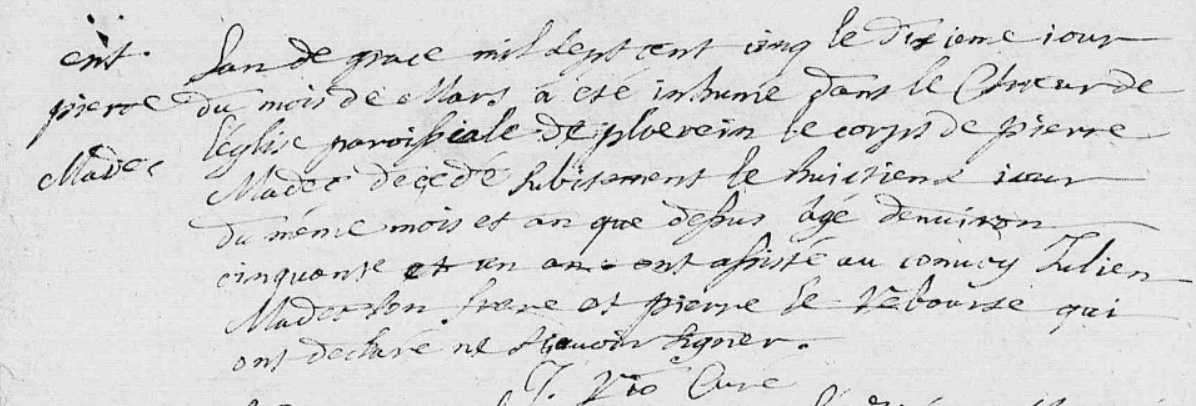 ent.
pierre
Madec
Lan de grace mil sept cent cinq le dixieme iour
du mois de Mars a eté inhumé dans le Choeur de
l'église paroissiale de ploerein le corps de pierre
Madec decedé subitement le huictiene iour
du méme mois et an que dessus àgé denuiron
cinquante et un an ont assisté au conuoy Iulien
Madec son frere et pierre le Rebourse qui
ont declaré ne sçauoir signer.
J. Curé